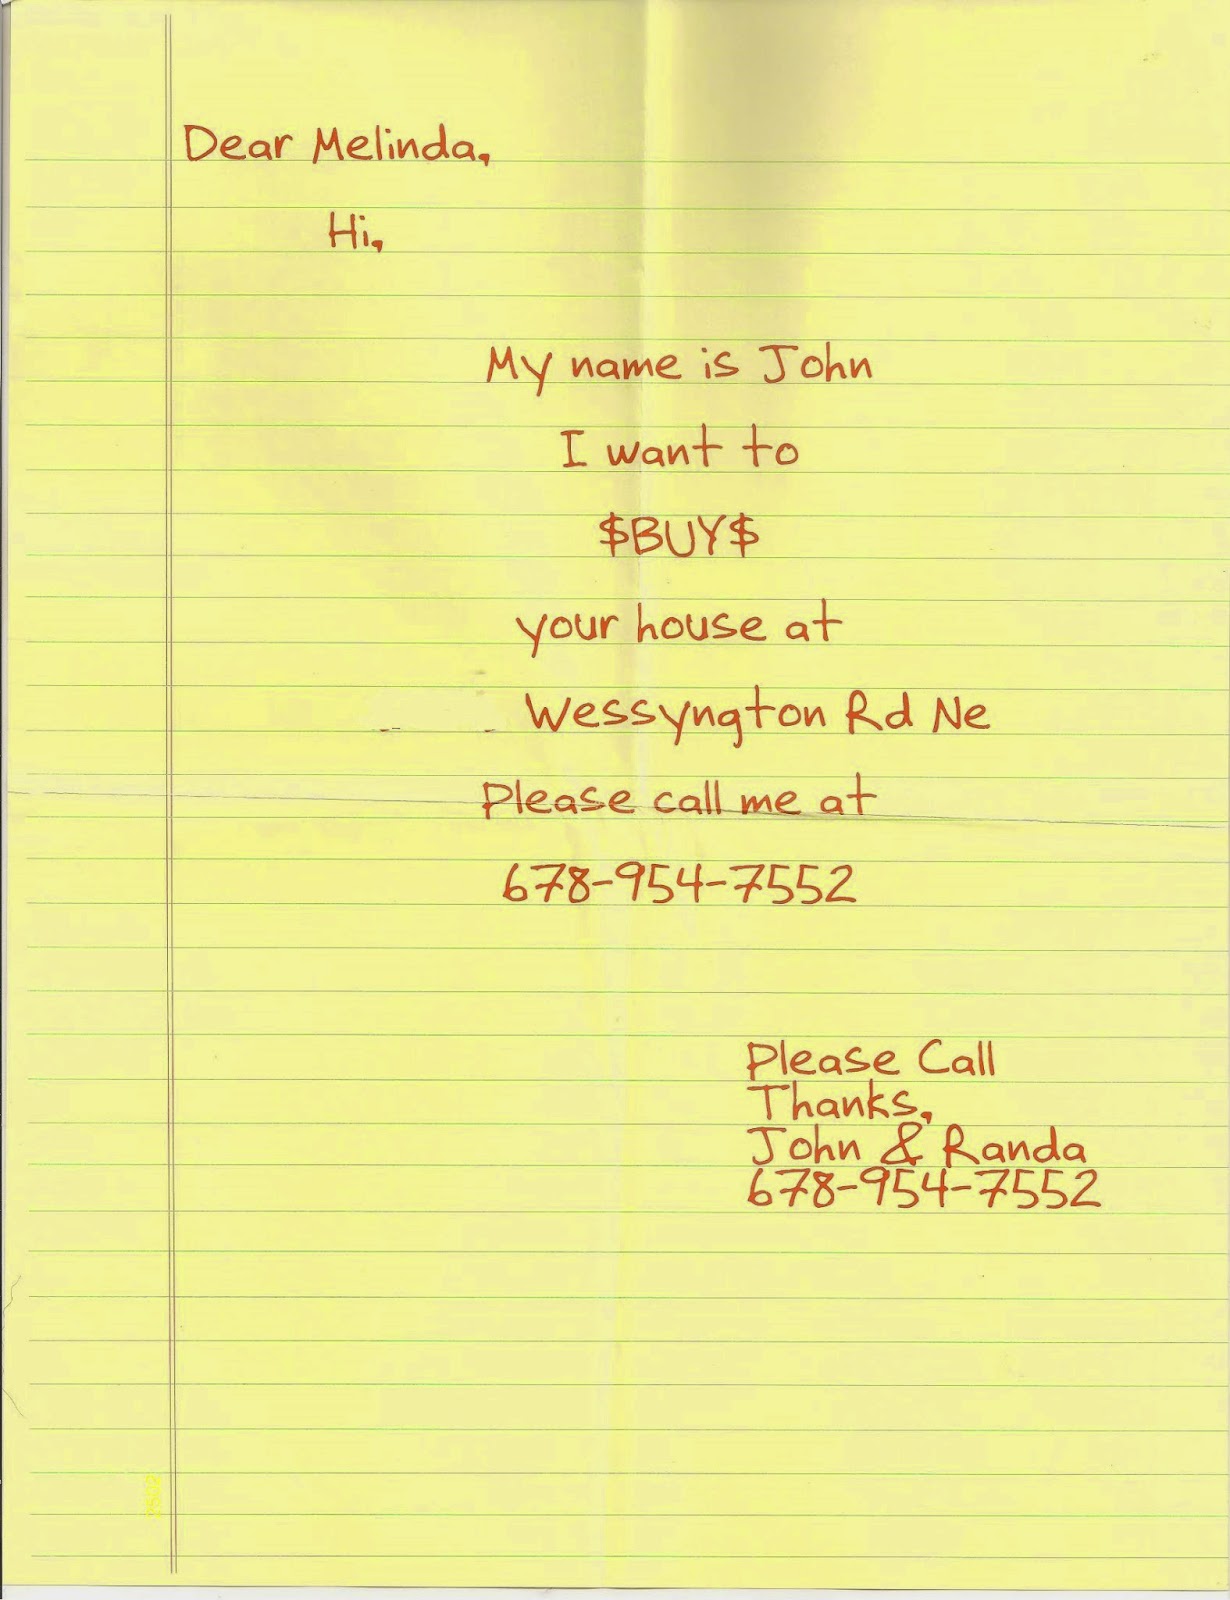 Dear Melinda,
Hi,
My name is John
I want to
$BUY$
your house at
Wessyngton Rd Ne
Please call me at
678-954-7552
Please Call
Thanks,
John & Randa
678-954-7552